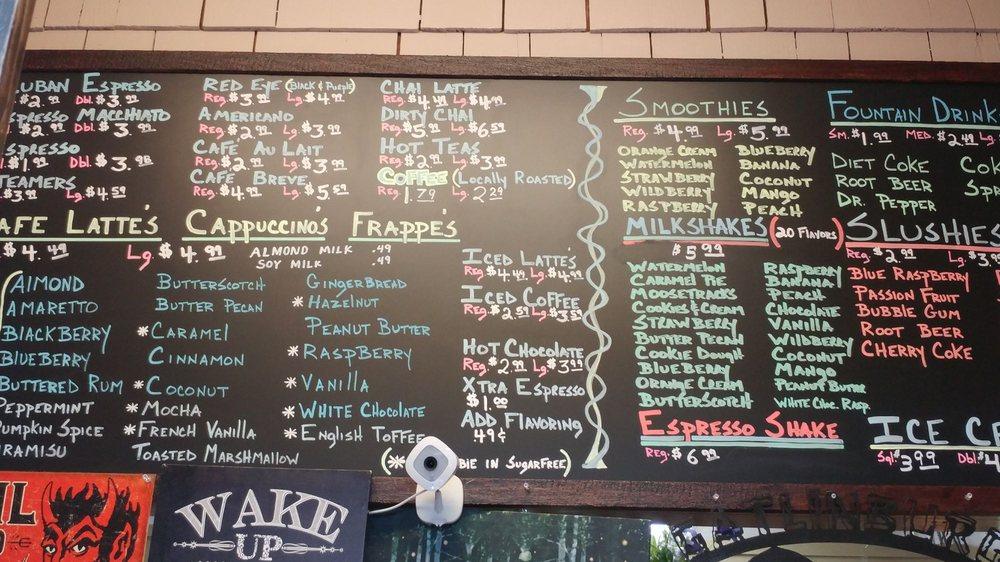 UBAN ESPRESSO
$2.99 Dbl. $3.99
SPRESSO MACCHIATO
$2.99 Dbl. $3.99
SPRESSO
$1.99 Dbl. $3.
TEAMERS
$3.99 Lg. $4.59
RED EYE (Black & Purple)
Reg. $3.99 Lg. $4.99
AMERICANO
Reg. $2.99 Lg. $3.99
CAFÉ AU LAIT
Reg. $2.99 Lg. $3.99
CAFÉ BREVE
Reg. $4.99 Lg. $5.59
CHAI LATTE
Reg. $4.49 Lg. $4.99
DIRTY CHAI
Reg. $5.99 Lg. $6.59
HOT TEAS
Reg. $2.99 Lg. $3.99
COFFEE (LOCALLY ROASTED)
Reg. 1.79 Lg. 2.29
AFE LATTE'S CAPPUCCINO'S FRAPPÉ'S
$4.49 Lg. $4.99
ALMOND MILK .49
SOY MILK .49
ALMOND
AMARETTO
BLACKBERRY
BLUEBERRY
BUTTERED RUM
PEPPERMINT
PUMPKIN SPICE
IRAMISU
BUTTERSCOTCH
BUTTER PECAN
*CARAMEL
CINNAMON
*COCONUT
*MOCHA
*FRENCH VANILLA
TOASTED MARSHMALLOW
GINGERBREAD
*HAZELNUT
PEANUT BUTTER
*RASPBERRY
*VANILLA
*WHITE CHOCOLATE
*ENGLISH TOFFEE
(* BLE IN SUGARFREE)
ICED LATTE'S
Reg. $4.49 Lg. $4.99
ICED COFFEE
Reg. $2.59 Lg. $3.59
HOT CHOCOLATE
Reg. $2.99 Lg. $3.99
XTRA ESPRESSO
$1.00
ADD FLAVORING
49¢
SMOOTHIES
Reg. $4.99 Lg. $5.99
ORANGE CREAM
WATERMELON
STRAWBERRY
WILDBERRY
RASPBERRY
BLUEBERRY
BANANA
COCONUT
MANGO
PEACH
MILKSHAKES (20 FLAVORS)
$5.99
WATERMELON
CARAMEL PIE
MOOSETRACKS
COOKIES & CREAM
STRAWBERRY
BUTTER PECAN
COOKIE DOUGH
BLUEBERRY
ORANGE CREAM
BUTTERSCOTCH
RASPBERRY
BANANA
PEACH
CHOCOLATE
VANILLA
WILDBERRY
COCONUT
MANGO
PEANUT BUTTER
WHITE CHOC. RASP.
ESPRESSO SHAKE
Reg. $6.99
FOUNTAIN DRINK
SM. $1.99 MED. $2.49 LG.
DIET COKE
ROOT BEER
DR. PEPPER
COK
SP
SLUSHIES
Reg. $2.99 Lg. $3.
BLUE RASPBERRY
PASSION FRUIT
BUBBLE GUM
ROOT BEER
CHERRY COKE
ICE CR
Sgl. $3.99 Dbl. $4
IL
WAKE
UP